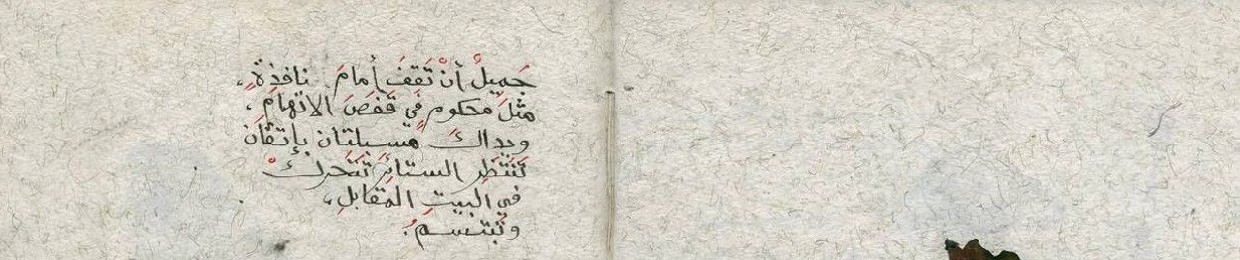 جَميلٌ أنْ تَقِفَ أمامَ نافذةٍ،
مثلَ محكومٍ في قَفَصِ الاتهامِ،
ويداكَ مسبلتان بإتقَان
تَنتَظِر الستائرَ تتَحركْ
في البيتِ المقابلِ،
وتُبتسمُ.